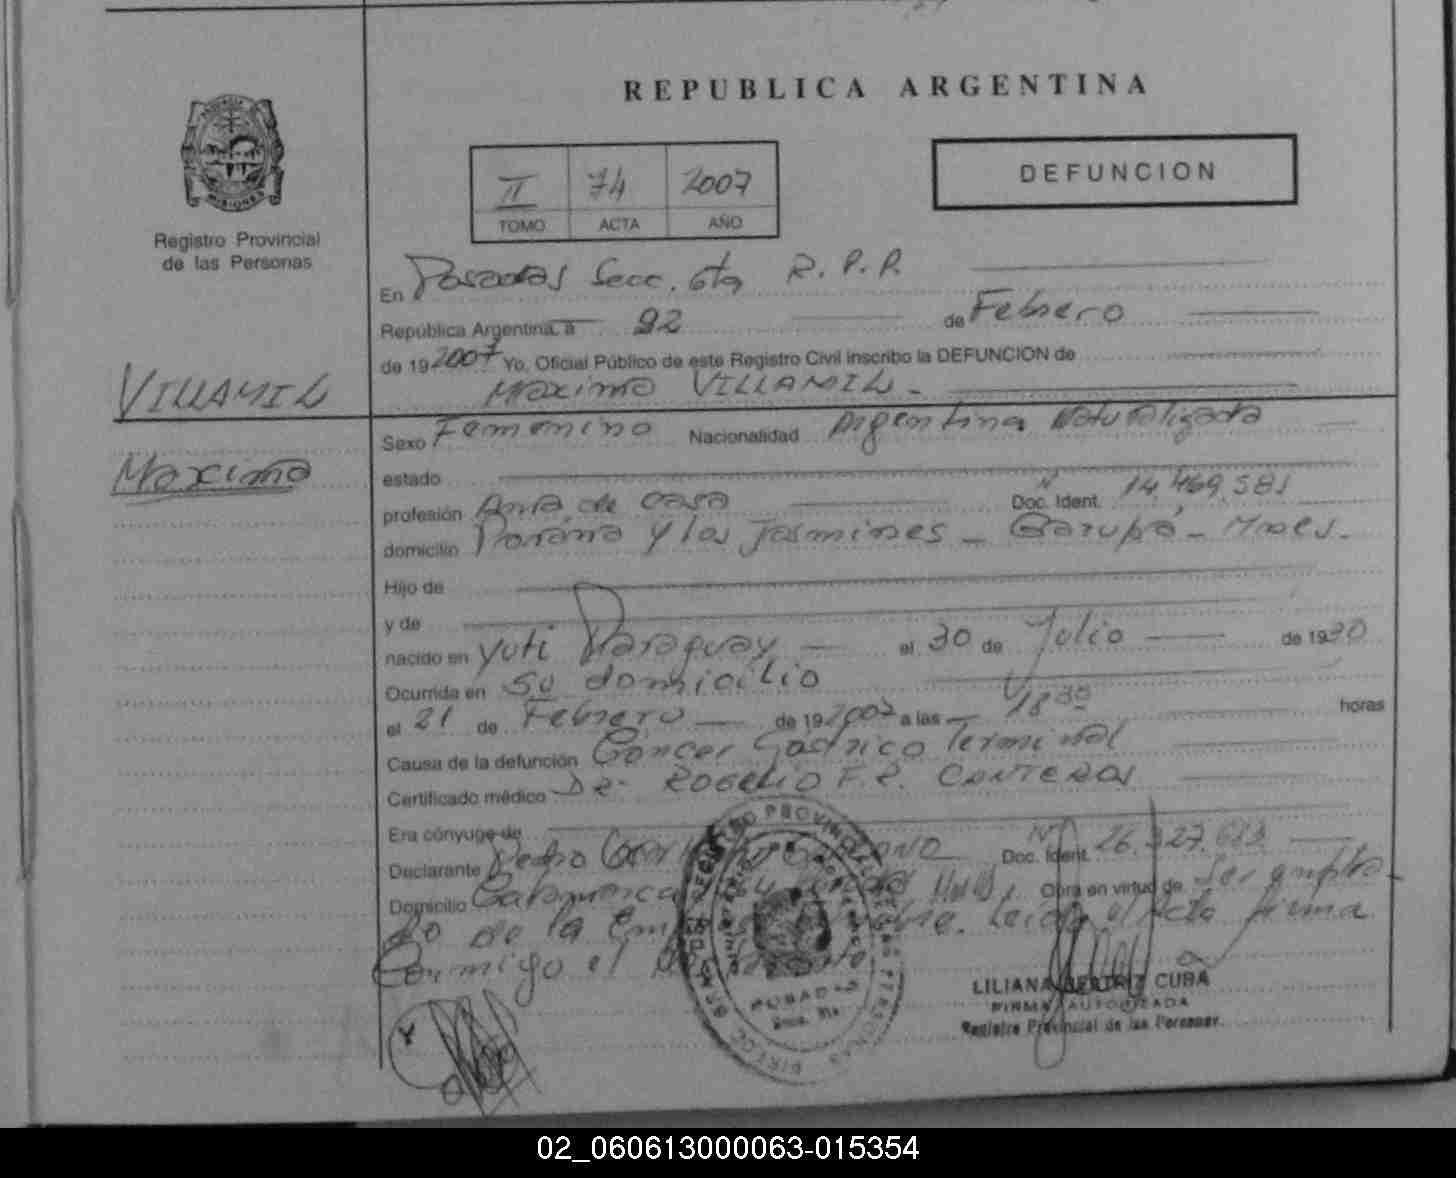 REPUBLICA ARGENTINA
II 74 2007
TOMO ACTA AÑO
DEFUNCION
MISIONES
Registro Provincial
de las Personas
En Posadas Secc. 6ta R.P.P.
República Argentina, a 22 de Febrero
de 19 2007 Yo, Oficial Público de este Registro Civil inscribo la DEFUNCION de
Maxima VILLAMIL -
VILLAMIL
Maxima
Sexo Femenino Nacionalidad Argentina Naturalizada
estado
profesión Ama de casa Doc. Ident. Nº 14.469.581
domicilio Paraná y los Jasmines - Garupá - Mnes.
Hijo de
y de
nacido en Yuti Paraguay el 30 de Julio de 1930
Ocurrida en su domicilio
el 21 de Febrero de 19 2007 a las 18 30 horas
Causa de la defunción Cáncer Gástrico Terminal
Certificado médico Dr. ROGELIO F.R. CANTEROS
Era cónyuge de
Declarante Pedro Doc. Ident. Nº 26.327.683
Domicilio Catamarca Obra en virtud de ser emplea-
do de la Leida el Acta firma
Conmigo el
LILIANA BEATRIZ CUBA
FIRMA AUTORIZADA
Registro Provincial de las Personas
POSADAS
02_060613000063-015354